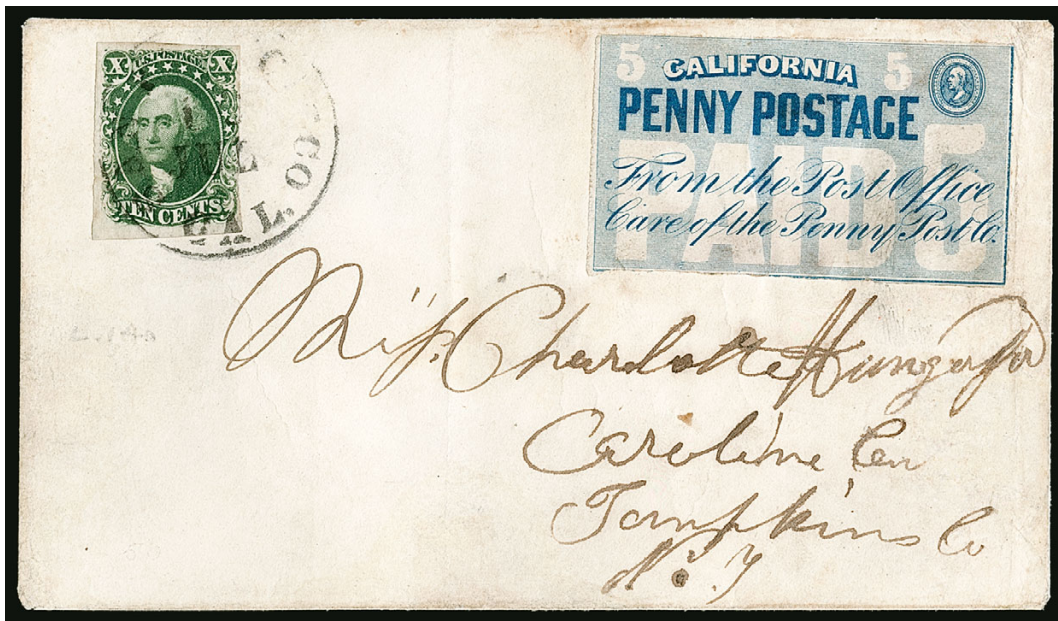 X U.S. POSTAGE X
TEN CENTS
CAL. 
5 CALIFORNIA 5
PENNY POSTAGE
PAID 5
From the Post Office
Care of the Penny Post Co.
Miss. Charlotte Hungerford
Caroline Cen
Tompkins Co
N. Y